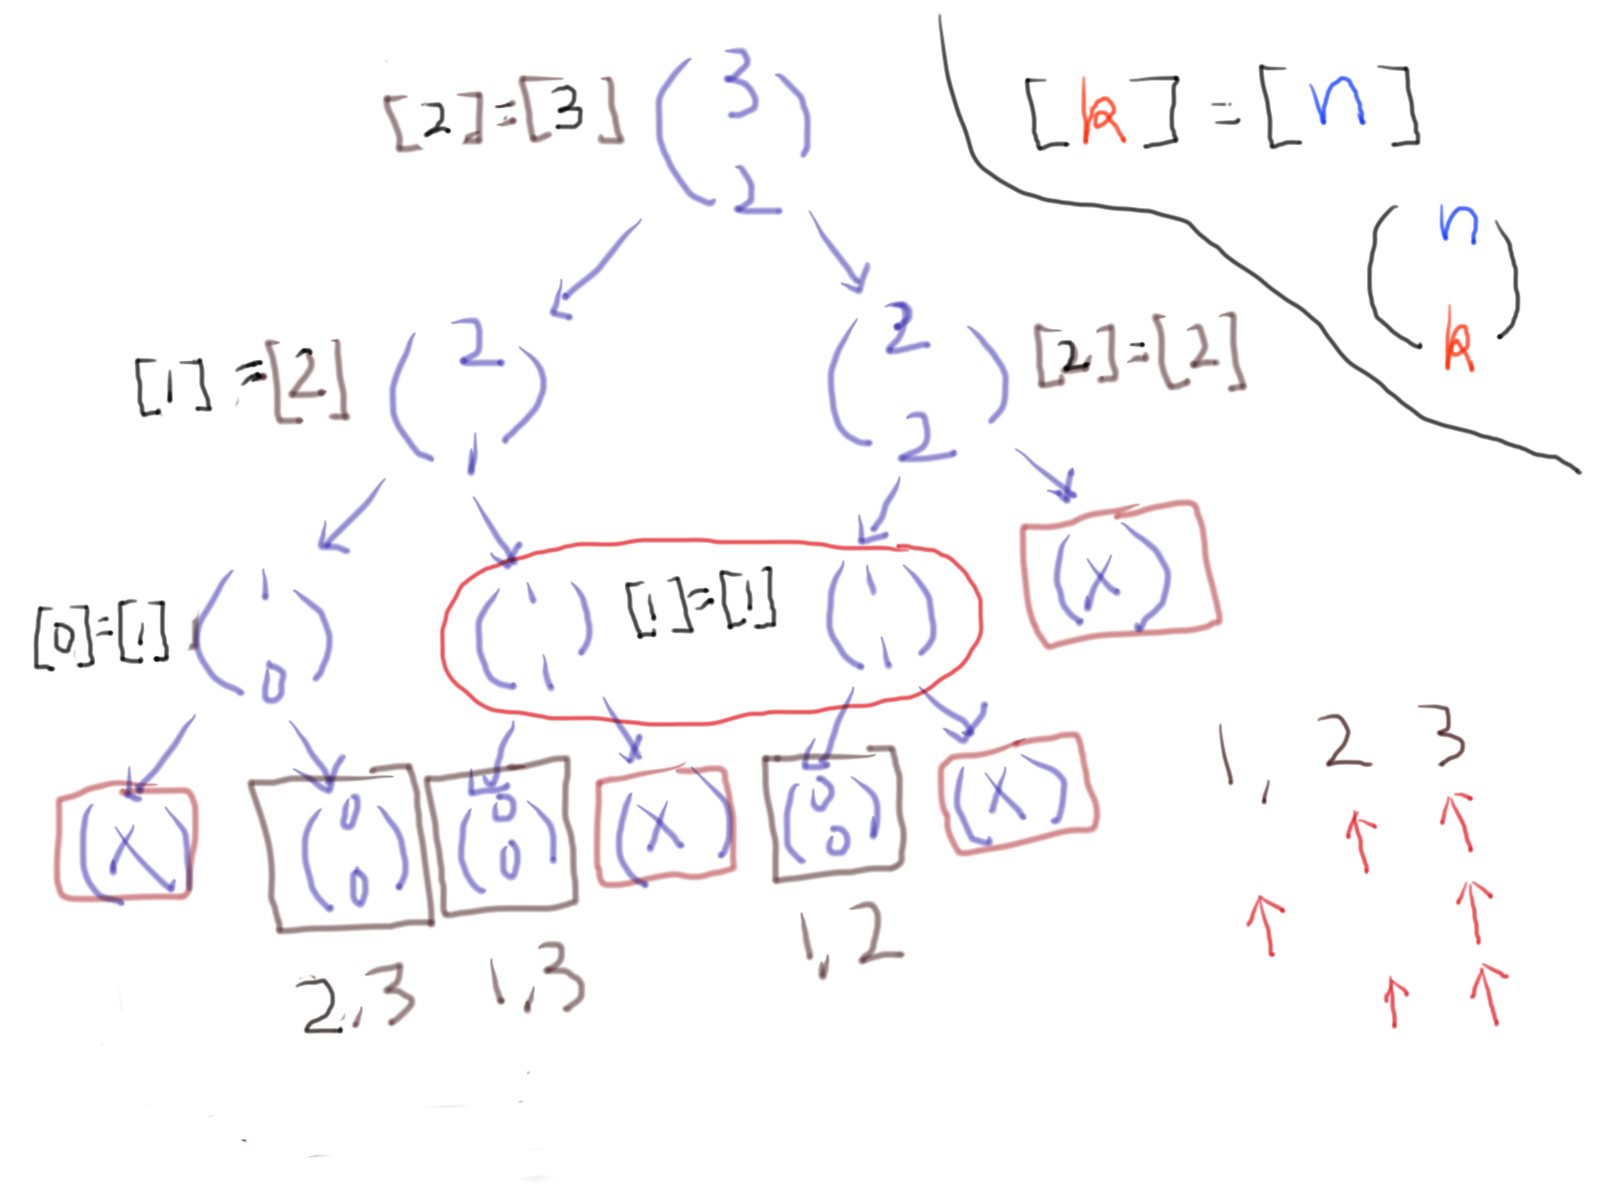 [2]=[3] (3 2)
[k]=[n]
(n k)
[1]=[2] (2 1)
(2 2) [2]=[2]
[0]=[1] (1 0)
(1 1) [1]=[1] (1 1)
(X)
(X) (0 0) (0 0) (X) (0 0) (X)
2,3 1,3 1,2
1, 2 3